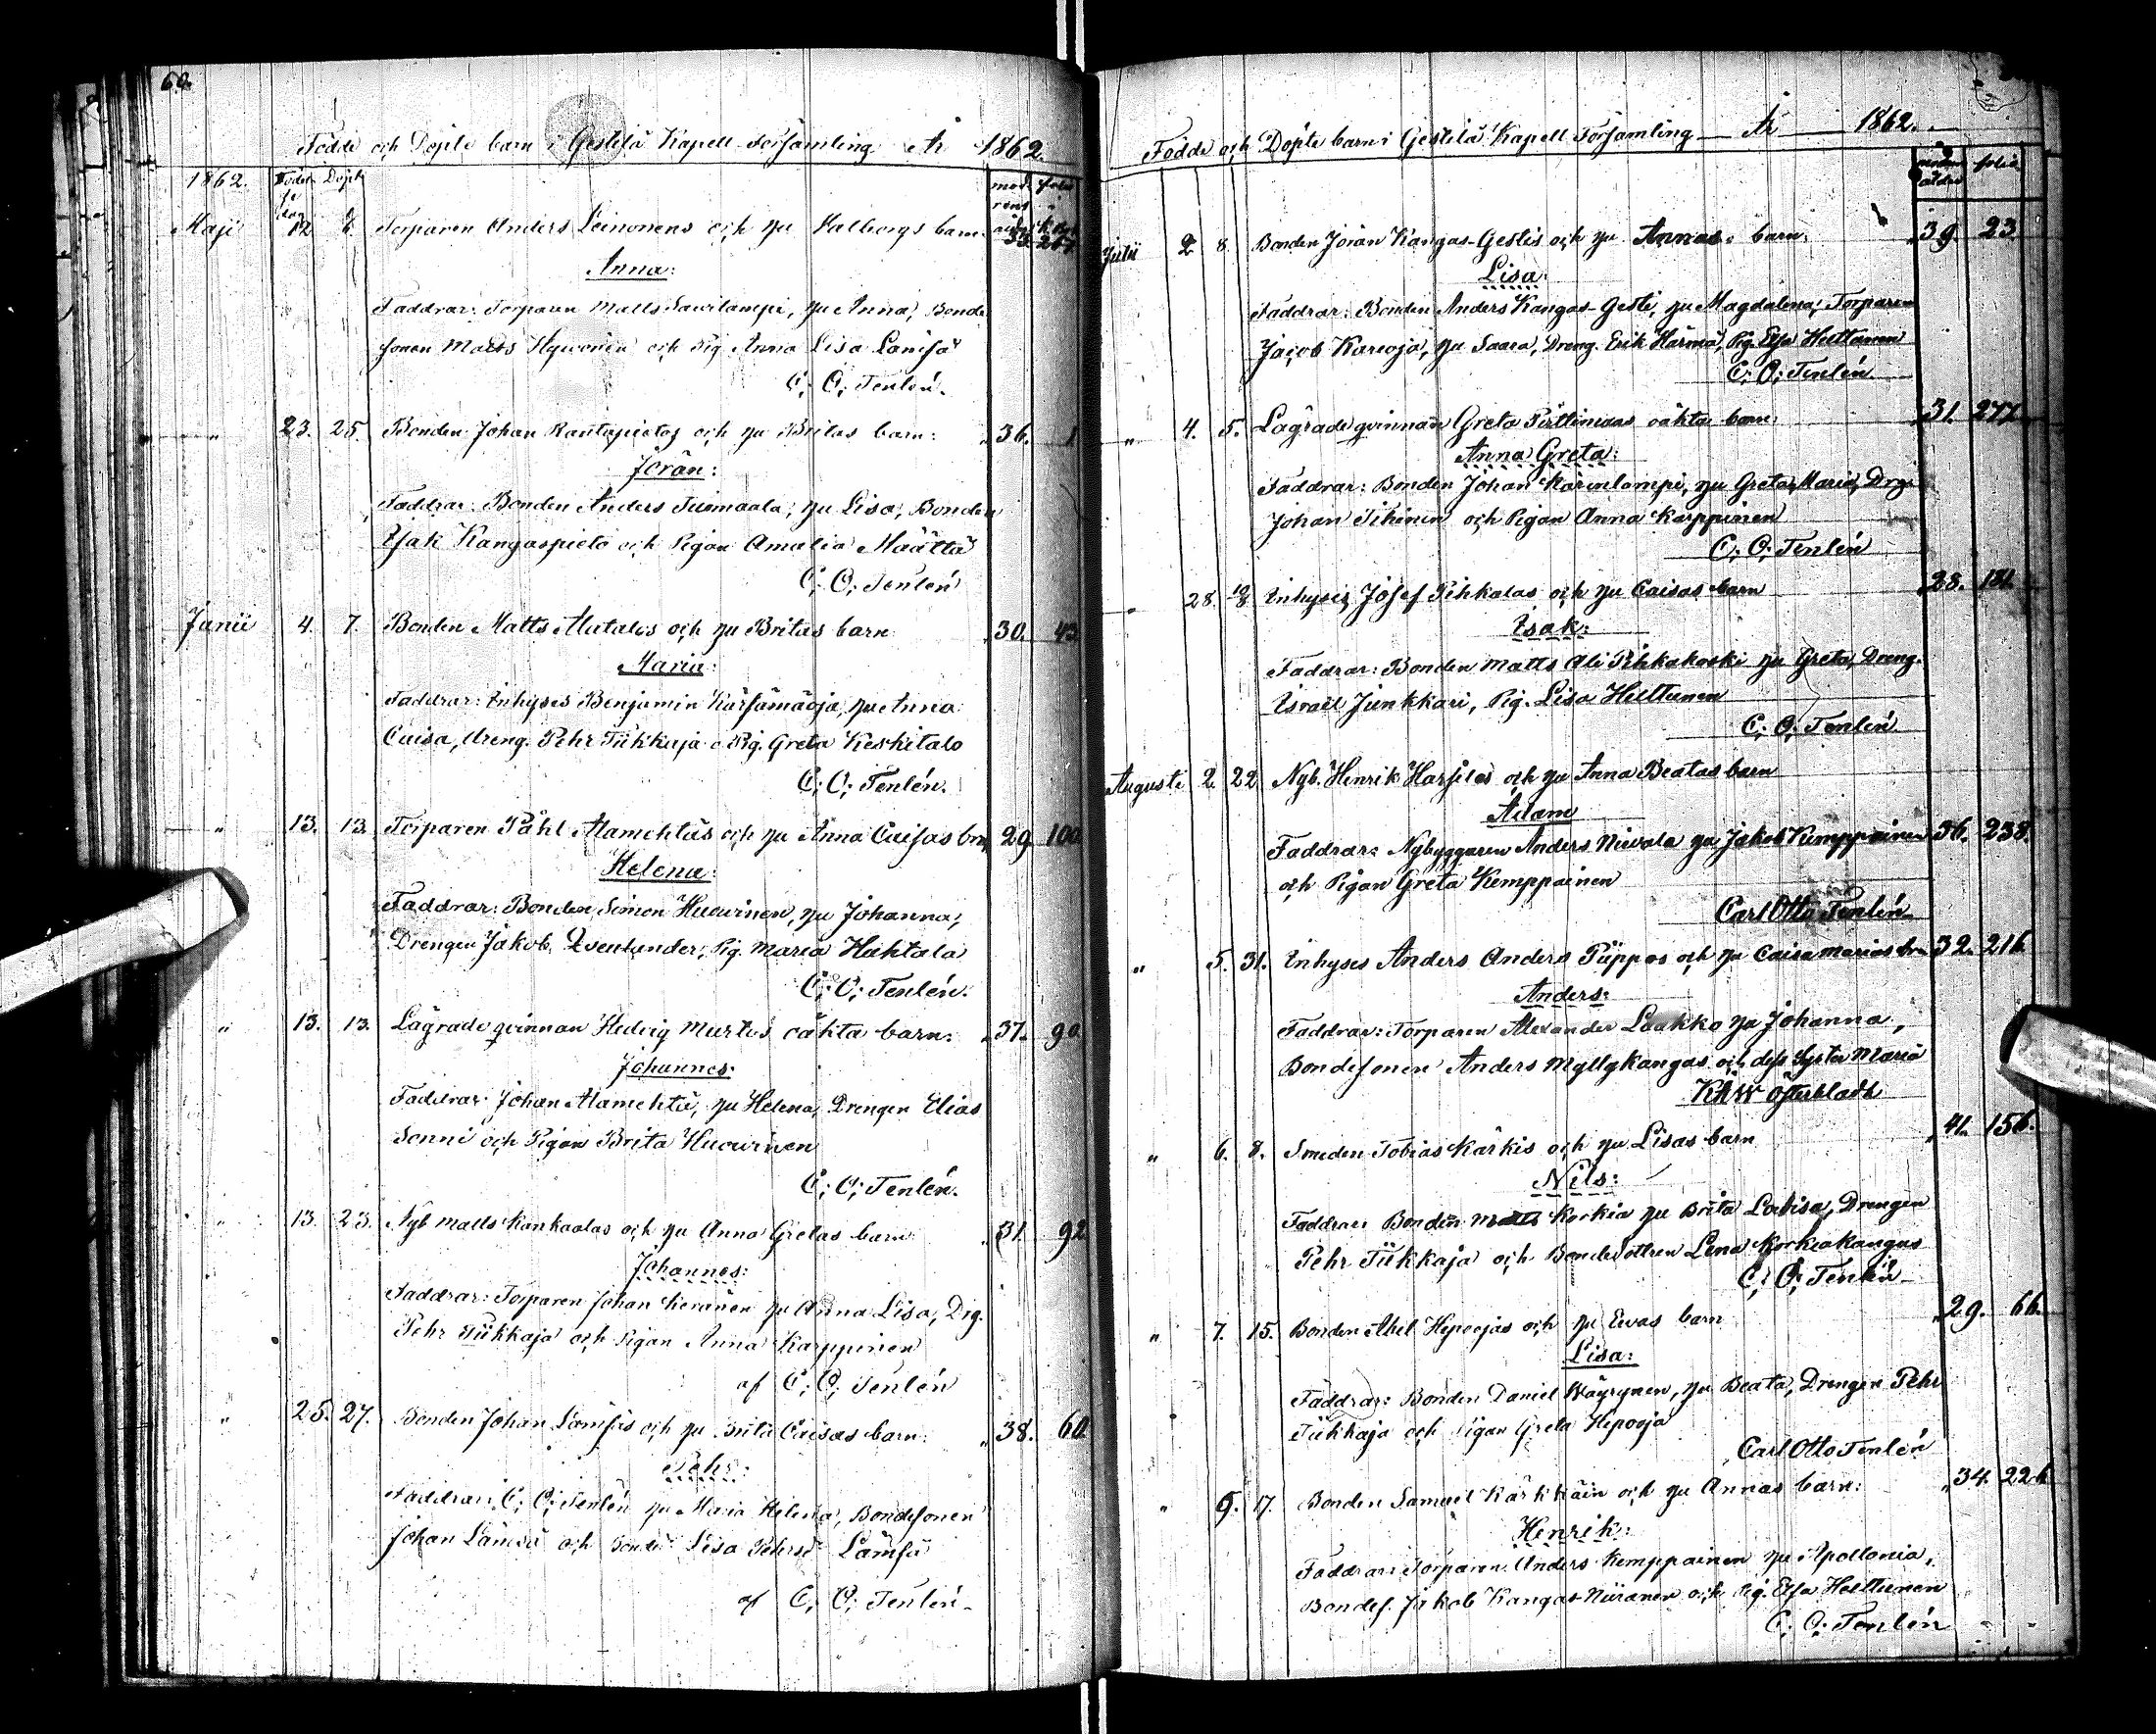 60.
Födde och Döpte barn i Gestilä Kapell-Församling År 1862.
1862. Födelsedag Döpt moderns ålder folio
Maji 12 Torparen Anders Leinonens och hu Valborgs barn 267
Anna:
Faddrar: Torparen Matts Saarilampi, hu Anna, Bonde
sonen Matts Hyvönen och Pig Anna Lisa Lamsa
C; O; Tenlén.
" 23. 25. Bonden Johan Rantapietos och hu Britas barn: 36. 1
Jöran:
Faddrar: Bonden Anders Tuomaala, hu Lisa, Bonden
Isak Kangaspieto och Pigan Amalia Määttä
C; O; Tenlén
Junii 4. 7. Bonden Matts Autalos och hu Britas barn 30. 43
Maria:
Faddrar: Inhyses Benjamin Kärsämäoja, hu Anna
Caisa, Dreng. Pehr Tükkaja o Pig. Greta Keskitalo
C; O; Tenlén.
" 13. 13. Torparen Påhl Alamehtäs och hu Anna Caisas brn 29 100
Helena:
Faddrar: Bonden Simon Huovinen, hu Johanna,
Drengen Jakob Qvenlunder, Pig. Maria Huhtala
C; O; Tenlén.
" 13. 13. Lägrade qvinnan Hedvig Murtos oäkta barn: 37. 90
Johannes:
Faddrar: Johan Alamehtä, hu Helena, Drengen Elias
Sonni och Pigan Brita Huovinen
C; O; Tenlén.
" 13. 23. Nyb Matts Kankaalas och hu Anna Gretas barn 31. 92
Johannes:
Faddrar: Torparen Johan Keränen hu Anna Lisa, Drg.
Pehr Tükkaja och Pigan Anna Karppinen
af C; O; Tenlén
" 25. 27. Bonden Johan Lämsäs och hu Brita Caisas barn: 38. 60
Pehr:
Faddrar: C; O; Tenlén hu Maria Helena, Bondesonen
Johan Lämsä och Lisa Pehrsd Lämsä
af C; O; Tenlén
Födde och Döpte barn i Gestilä Kapell Församling År 1862.
moderns ålder folio
Julii 2 8. Bonden Jöran Kangas-Gestis och hu Annas barn 39. 23
Lisa:
Faddrar: Bonden Anders Kangas-Gesti, hu Magdalena, Torparen
Jacob Kareoja, hu Saara, Dreng. Erik Härmä, Pig. Elsa Huttunen
C; O; Tenlén
" 4. 5. Lägrade qvinnan Greta Pirttimaas oäkta barn 31. 277
Anna Greta:
Faddrar: Bonden Johan Karinlampi, hu Greta Maria, Drg.
Johan Tihinen och Pigan Anna Karppinen
C; O; Tenlén
" 28. 10/8 Inhyses Josef Pihkalas och hu Caisas barn 28. 181
Isak:
Faddrar: Bonden Matts Ali Pihkakoski hu Greta, Dreng.
Israel Junkkari, Pig. Lisa Huttunen
C; O; Tenlén
Augusti 2. 22 Nyb. Henrik Harjulas och hu Anna Beatas barn
Adam 36. 238.
Faddrar: Nybyggaren Anders Niivala hu Jakob Kemppainen
och Pigan Greta Kemppainen
Carl Otto Tenlén
" 5. 31. Inhyses Anders Anders Piippos och hu Caisa Marias brn 32. 216
Anders:
Faddrar: Torparen Alexander Laakko hu Johanna,
Bondesonen Anders Myllykangas och dess Syster Maria
Österbladh
" 6. 8. Smeden Tobias Kärkis och hu Lisas barn 41. 156.
Nils:
Faddrar: Bonden Matts Korkia hu Brita Lovisa, Drengen
Pehr Tükkaja och Bondedottren Lena Korkiakangas
C; O; Tenlén
" 7. 15. Bonden Abel Hepoojas och hu Evas barn 29. 66.
Lisa:
Faddrar: Bonden Daniel Wäyrynen, hu Beata, Drengen Pehr
Tükkaja och Pigan Greta Hepooja
Carl Otto Tenlén
" 9. 17. Bonden Samuel Kärkkäin och hu Annas barn: 34. 226
Henrik:
Faddrar: Torparen Anders Kemppainen hu Apollonia,
Bondes. Jakob Kangas-Niiranen och Pig. Elsa Huttunen
C; O; Tenlén